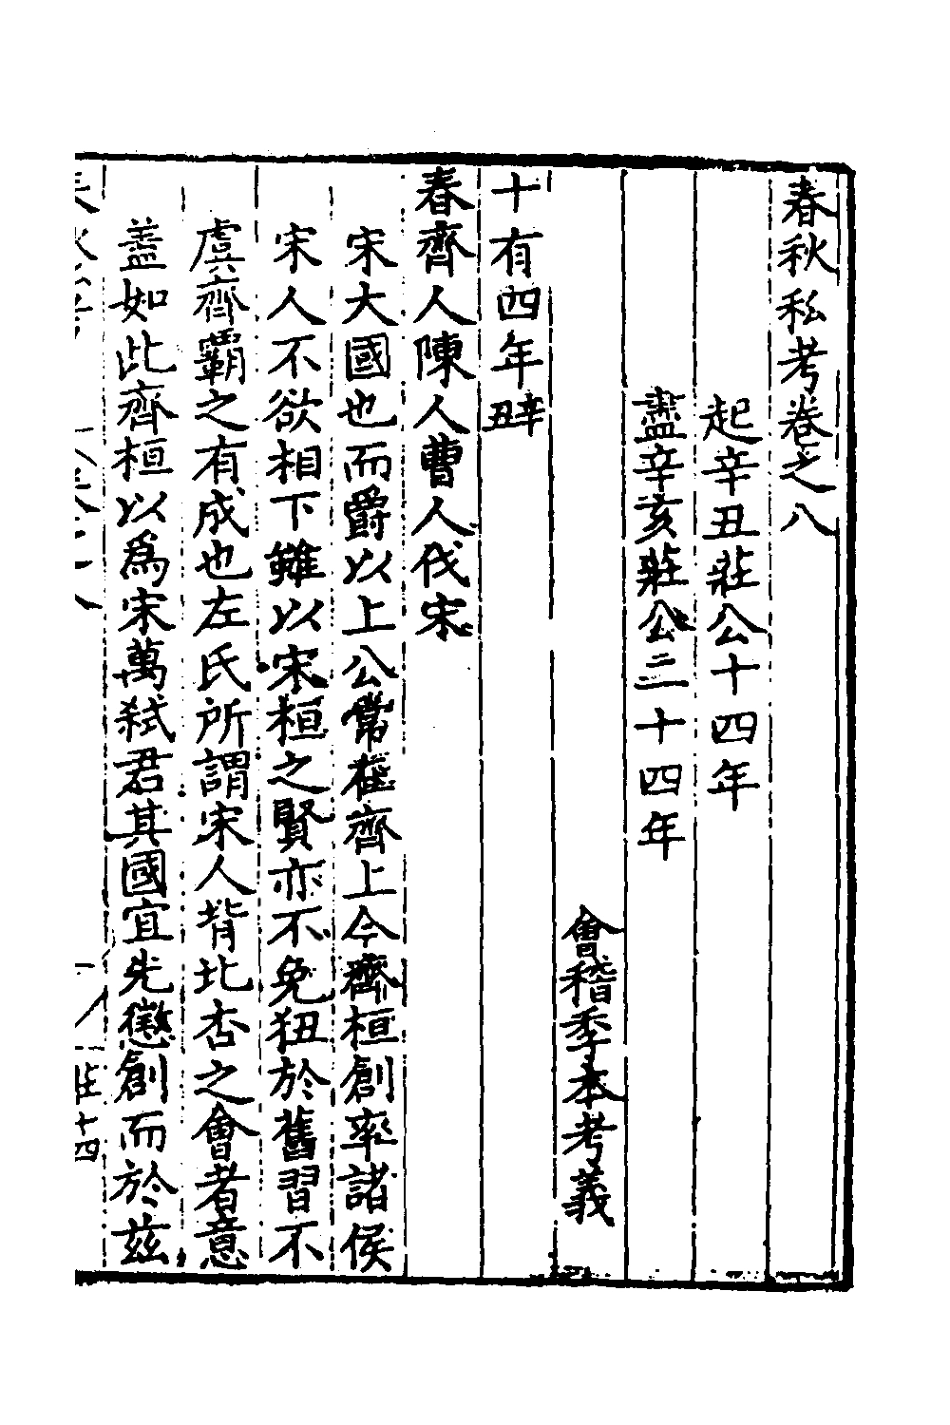 春秋私考卷之八
起辛丑莊公十四年
盡辛亥莊公二十四年
會稽季本考義
十有四年辛丑
春齊人陳人曹人伐宋
宋大國也而爵以上公常在齊上今齊桓創率諸侯
宋人不欲相下雖以宋桓之賢亦不免狃於舊習不
虞齊霸之有成也左氏所謂宋人背北杏之會者意
葢如此齊桓以為宋萬弑君其國宜先懲創而於兹
莊十四